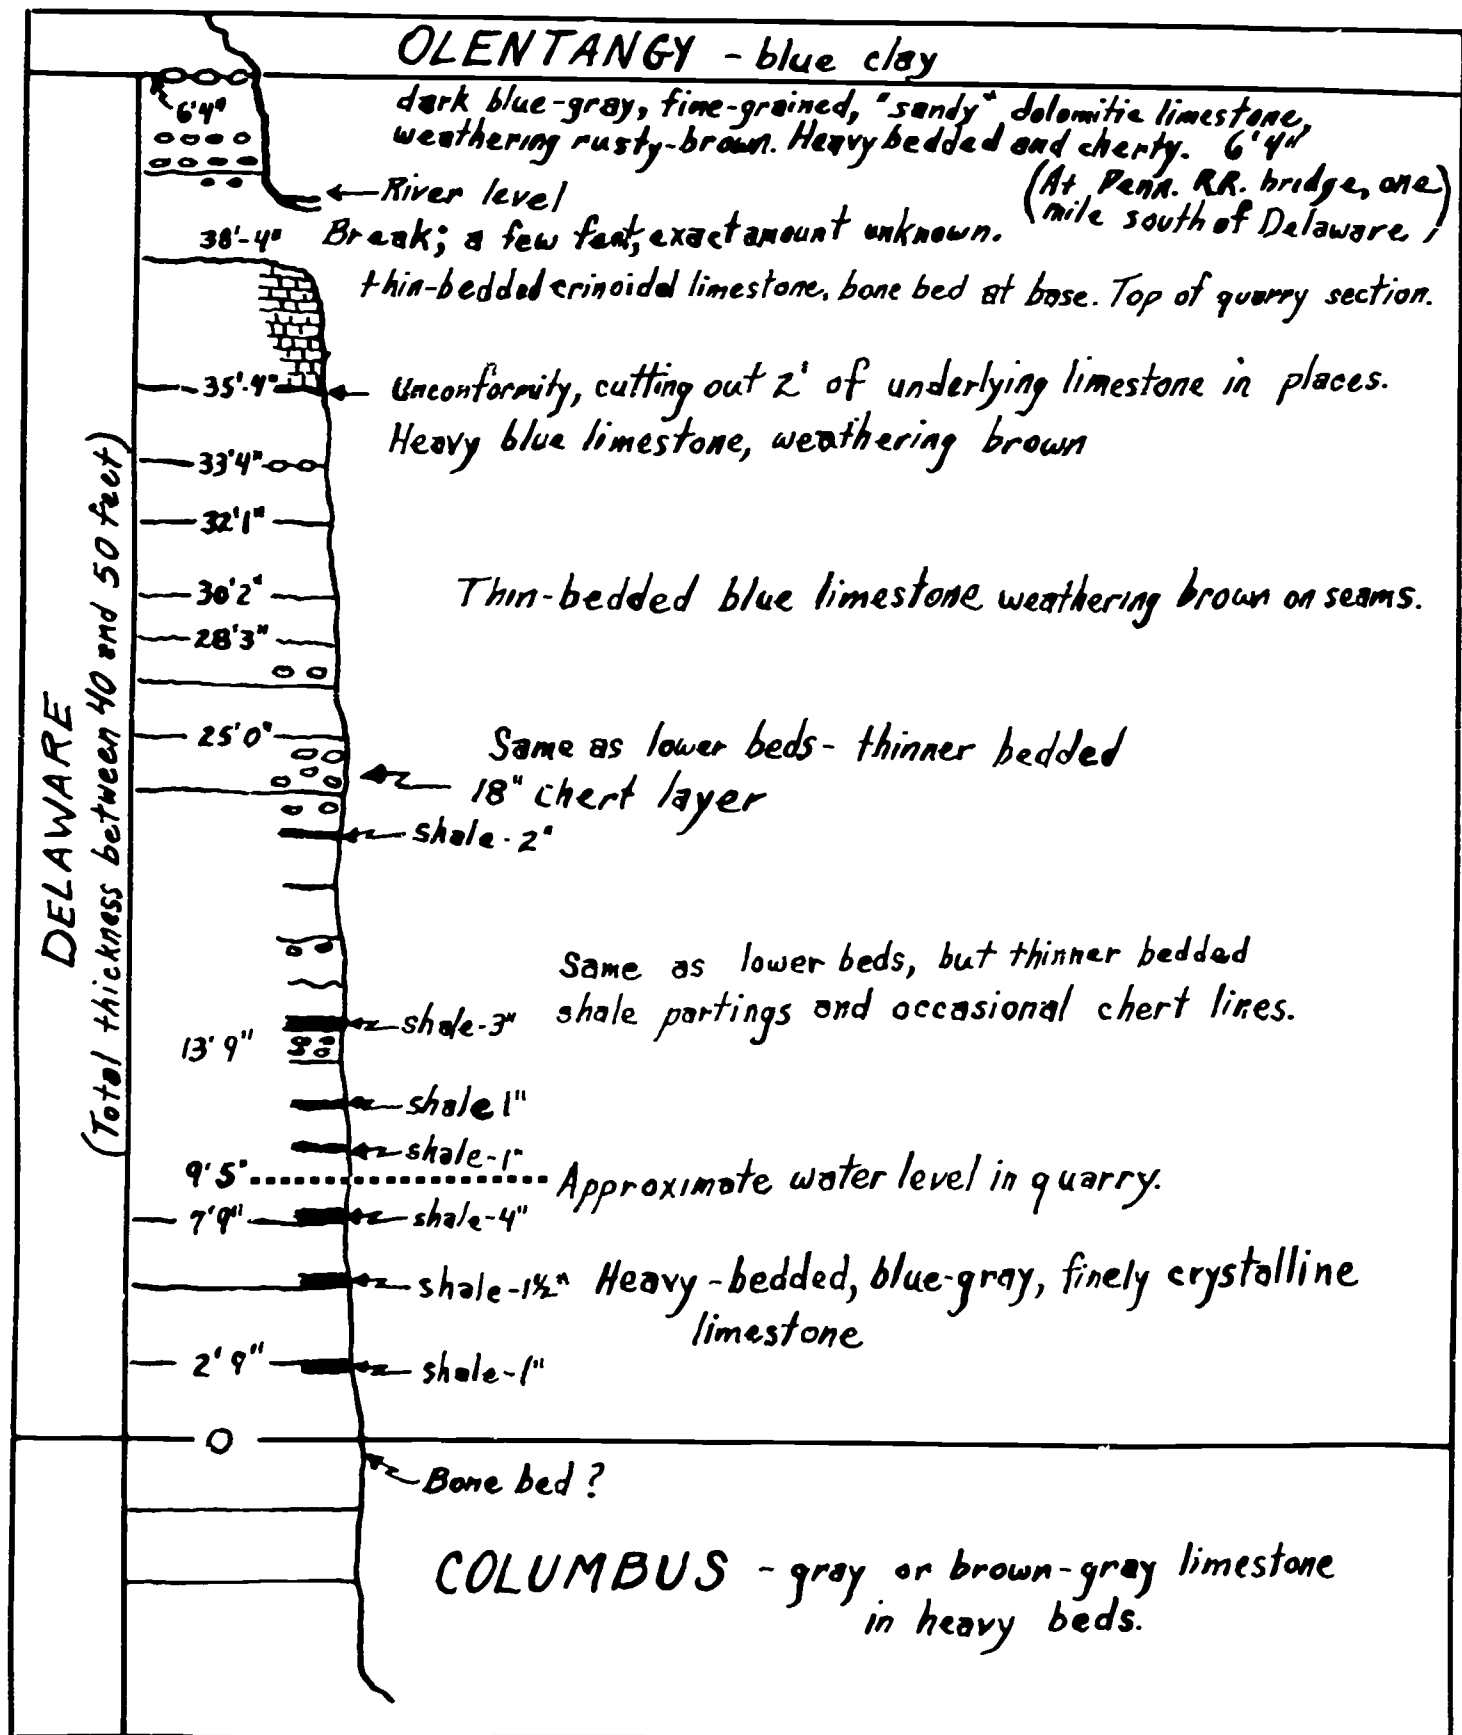 OLENTANGY - blue clay
6'4"
dark blue-gray, fine-grained, "sandy" dolomitic limestone,
weathering rusty-brown. Heavy bedded and cherty. 6'4"
(At Penn. RR. bridge, one
mile south of Delaware)
River level
38'-4" Break; a few feet, exact amount unknown.
thin-bedded crinoidal limestone, bone bed at base. Top of quarry section.
35'-4" Unconformity, cutting out 2' of underlying limestone in places.
Heavy blue limestone, weathering brown
33'4"
32'1"
30'2" Thin-bedded blue limestone weathering brown on seams.
28'3"
25'0" Same as lower beds - thinner bedded
18" chert layer
shale - 2"
DELAWARE
(Total thickness between 40 and 50 feet)
Same as lower beds, but thinner bedded
shale partings and occasional chert lines.
shale-3"
13'9"
shale 1"
shale-1"
9'5" Approximate water level in quarry.
7'9" shale-4"
shale-1½" Heavy-bedded, blue-gray, finely crystalline
limestone
2'9" shale-1"
0
Bone bed?
COLUMBUS - gray or brown-gray limestone
in heavy beds.